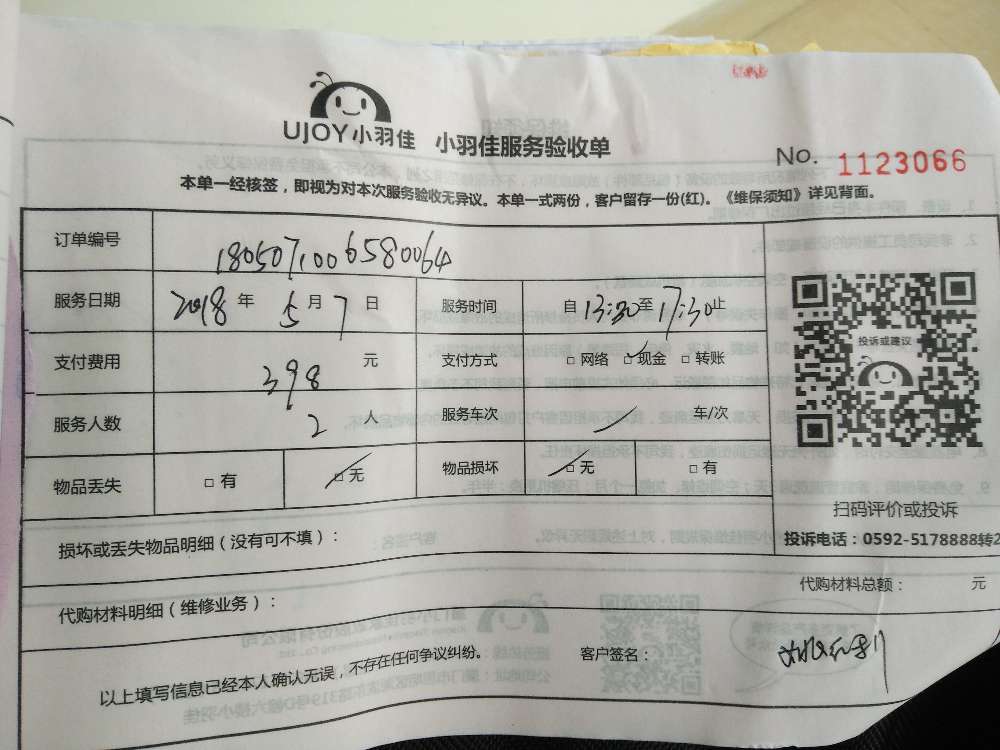 UJOY小羽佳 小羽佳服务验收单
No. 1123066
本单一经核签，即视为对本次服务验收无异议。本单一式两份，客户留存一份(红)。《维保须知》详见背面。
订单编号 1805071006580064
服务日期 2018 年 5 月 7 日 服务时间 自 13:30 至 17:30 止
支付费用 398 元 支付方式 □ 网络 □ 现金 □ 转账
服务人数 2 人 服务车次 / 车/次
物品丢失 □ 有 □ 无 物品损坏 □ 无 □ 有
投诉或建议
扫码评价或投诉
投诉电话：0592-5178888转2
损坏或丢失物品明细（没有可不填）：
代购材料明细（维修业务）： 代购材料总额： 元
以上填写信息已经本人确认无误，不存在任何争议纠纷。 客户签名：